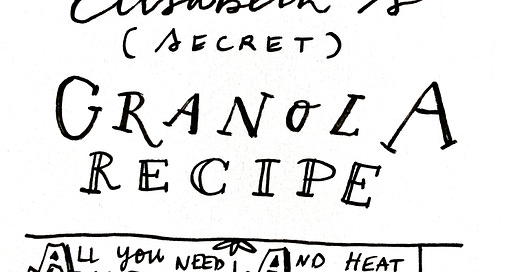 Elisabeth's
(SECRET)
GRANOLA
RECIPE
ALL YOU NEED
AND HEAT